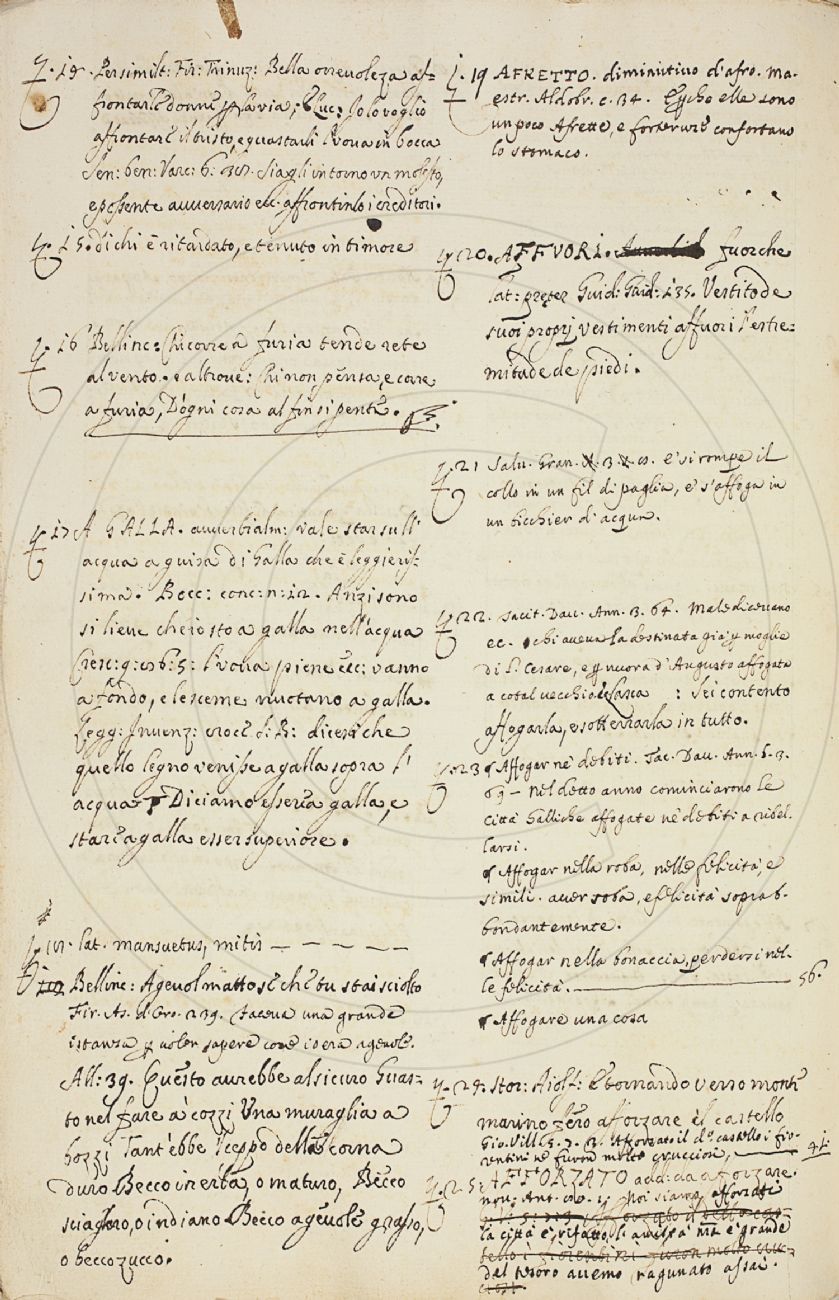 14. Persimilt: Fir: Trinuz: Bella orrevoleza af-
frontare donne per la via; E Luc: Io lo voglio
affrontare il tristo, e guastarli l'vova in bocca
Sen: ben: Varc: 6: Siagli intorno vn molesto,
e possente auuersario ecc. affrontinlo i creditori.
15. di chi è ritardato, e tenuto in timore
16 Bellinc: Chi corre à furia tende rete
al vento. e altroue: Chi non pensa, e core
a furia, D'ogni cosa al fin si pente.
17 A GALLA. auuerbialm: vale star sull'
acqua a guisa di Galla che è leggieris-
sima. Bocc: conc: n: 12. Anzi sono
si lieue che io sto a galla nell'acqua
Cresc: 9: 86: 5: l'vova piene ecc: vanno
a fondo, e le sceme vuotano a galla.
Legg: Inuenz: croce S: R: dicesi che
quello legno venisse a galla sopra l'
acqua Diciamo esser a galla, e
stare a galla esser superiore.
18. lat. mansuetus, mitis — — — — —
Bellinc: Ageuol matto se che tu stai sciolto
Fir. As. d'Oro. 239. Faceua una grande
istanza p uoler sapere come io era ageuole.
All: 39. Questo aurebbe al sicuro Guas-
to nel fare a' cozzi Una muraglia a
bozzi Tant'ebbe il ceppo delle corna
duro Becco in erba, o maturo, Becco
sciagloro, o indiano Becco ageuole grasso,
o beccozucco.
19 AFRETTO. diminitiuo d'afro. Ma-
estr. Aldobr. c. 34. Epperche elle sono
un poco Afrette, e forserure confortano
lo stomaco.
20. AFFVORI. fuorche
lat: præter Guid: Guid: 135. Vestito de
suoi proprj vestimenti affuori l'estre-
mitade de piedi.
21 Salu. Gran. 3. e' si rompe il
collo in un fil di paglia, e s'affoga in
un bicchier d'acqua.
22. Tacit. Dau. Ann. 3. 64. Male dicercano
ec. chi aueua la destinata già p moglie
di L. Cesare, e p nuora d'Augusto affogata
a cotal vecchio : Sei contento
affogarla, e sotterrarla in tutto.
23 Affogar ne' debiti. Tac. Dau. Ann. 6. 3.
69 — nel detto anno cominciarono le
città Galliche affogate ne' debiti a ribel-
larsi.
Affogar nella roba, nelle felicità, e
simili. auer roba, e felicità soprab-
bondantemente.
Affogar nella bonaccia, perdersi nel-
le felicità. — 56.
Affogare una cosa
24. Stor: Aiolf: E tornando verso monte
marino feno aforzare el castello
Gio. Vill. 5. 7. 3. Afforzato il d.o castello i fio-
rentini ne furon molto crucciosi,
25. AFFORZATO add: da afforzare.
nou. Ant. Noi siamo afforzati
la città è rifatto, grande
del tesoro auemo ragunato assai.